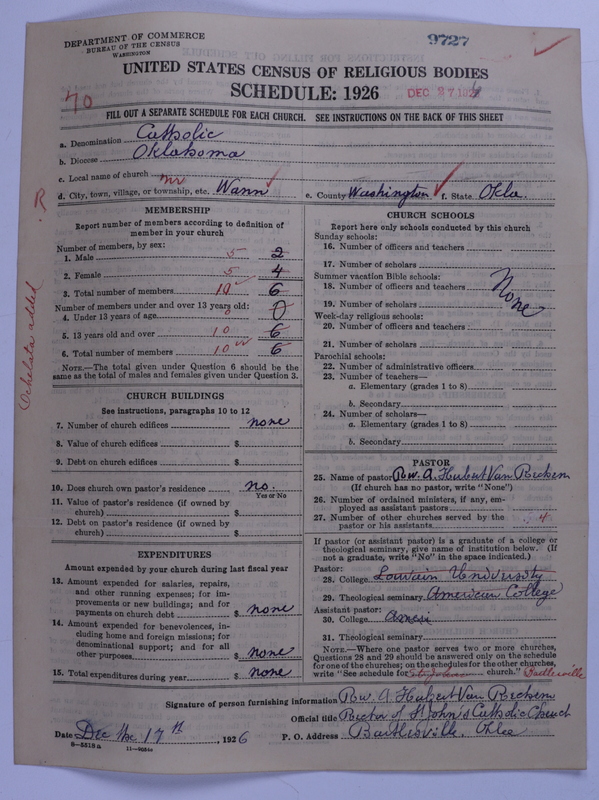 DEPARTMENT OF COMMERCE
BUREAU OF THE CENSUS
WASHINGTON
9727
UNITED STATES CENSUS OF RELIGIOUS BODIES
SCHEDULE: 1926
DEC 27 192
70
FILL OUT A SEPARATE SCHEDULE FOR EACH CHURCH. SEE INSTRUCTIONS ON THE BACK OF THIS SHEET
a. Denomination Catholic
b. Diocese Oklahoma
c. Local name of church
d. City, town, village, or township, etc. nr Wann
e. County Washington f. State Okla.
R
Ochelata added
MEMBERSHIP
Report number of members according to definition of member in your church
Number of members, by sex:
1. Male 5 2
2. Female 5 4
3. Total number of members 10 6
Number of members under and over 13 years old:
4. Under 13 years of age 0 0
5. 13 years old and over 10 6
6. Total number of members 10 6
NOTE.—The total given under Question 6 should be the
same as the total of males and females given under Question 3.
CHURCH BUILDINGS
See instructions, paragraphs 10 to 12
7. Number of church edifices none
8. Value of church edifices $
9. Debt on church edifices $
10. Does church own pastor's residence no.
Yes or No
11. Value of pastor's residence (if owned by
church) $
12. Debt on pastor's residence (if owned by
church) $
EXPENDITURES
Amount expended by your church during last fiscal year
13. Amount expended for salaries, repairs,
and other running expenses; for im-
provements or new buildings; and for
payments on church debt $ none
14. Amount expended for benevolences, in-
cluding home and foreign missions; for
denominational support; and for all
other purposes $ none
15. Total expenditures during year $ none
CHURCH SCHOOLS
Report here only schools conducted by this church
Sunday schools:
16. Number of officers and teachers
17. Number of scholars
Summer vacation Bible schools:
18. Number of officers and teachers
None
19. Number of scholars
Week-day religious schools:
20. Number of officers and teachers
21. Number of scholars
Parochial schools:
22. Number of administrative officers
23. Number of teachers—
a. Elementary (grades 1 to 8)
b. Secondary
24. Number of scholars—
a. Elementary (grades 1 to 8)
b. Secondary
PASTOR
25. Name of pastor Rev. A. Hubert Van Rechem
(If church has no pastor, write "None")
26. Number of ordained ministers, if any, em-
ployed as assistant pastors
27. Number of other churches served by the
pastor or his assistants 4
If pastor (or assistant pastor) is a graduate of a college or
theological seminary, give name of institution below. (If
not a graduate, write "No" in the space indicated.)
Pastor:
28. College Louvain University
29. Theological seminary American College
Assistant pastor:
30. College
31. Theological seminary
NOTE.—Where one pastor serves two or more churches,
Questions 28 and 29 should be answered only on the schedule
for one of the churches; on the schedules for the other churches,
write "See schedule for St Johns church." Bartlesville
Signature of person furnishing information Rev. A. Hubert Van Rechem
Official title Rector of St John's Catholic Church
Date Dec the 17th, 1926
P. O. Address Bartlesville, Okla
8—5519 a 11—9084